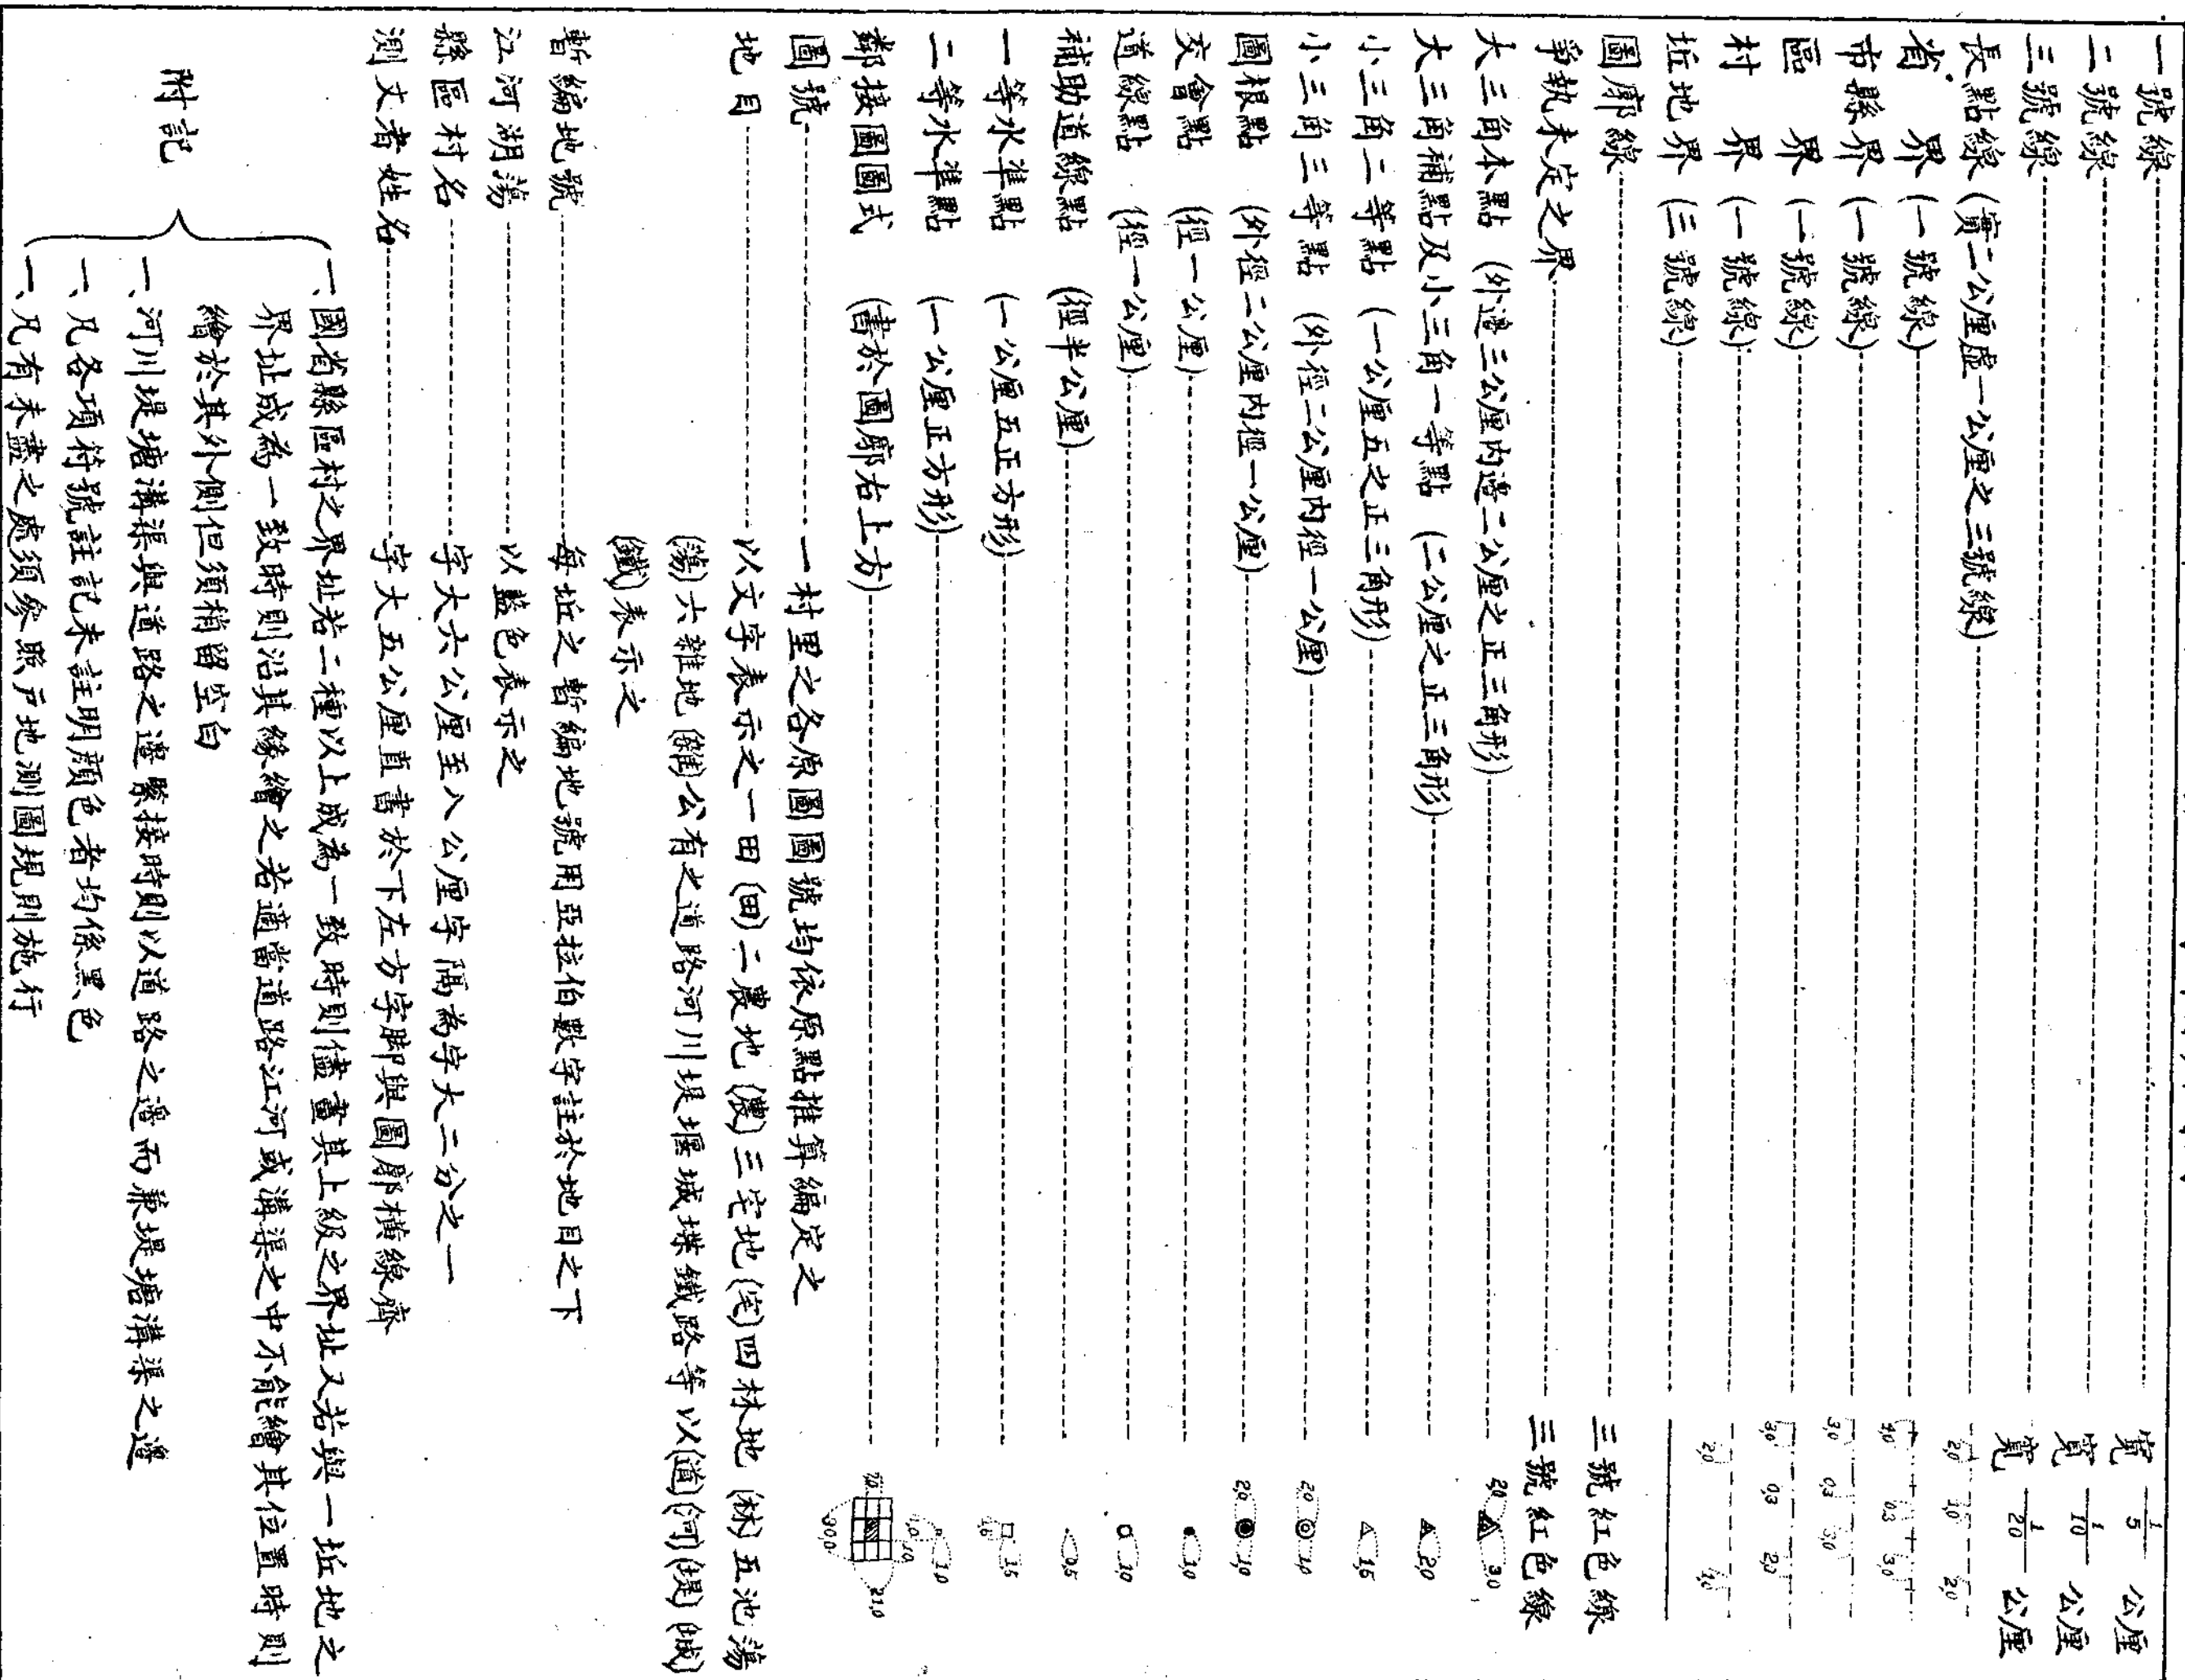 一號線 寬 1/5 公厘
二號線 寬 1/10 公厘
三號線 寬 1/20 公厘
長點線(實二公厘虛一公厘之三號線) 2,0 1,0 2,0
省界(一號線) 4,0 0,3 3,0
市縣界(一號線) 3,0 0,3 3,0
區界(一號線) 3,0 0,3 2,0
村界(一號線) 2,0 1,0
坵地界(三號線)
圖廓線 三號紅色線
爭執未定之界 三號紅色線
大三角本點(外邊三公厘內邊二公厘之正三角形) 2,0 3,0
大三角補點及小三角一等點(二公厘之正三角形) 2,0
小三角二等點(一公厘五之正三角形) 1,5
小三角三等點(外徑二公厘內徑一公厘) 2,0 1,0
圖根點(外徑二公厘內徑一公厘) 2,0 1,0
交會點(徑一公厘) 1,0
道線點(徑一公厘) 1,0
補助道線點(徑半公厘) 0,5
一等水準點(一公厘五正方形) 1,5 1,5
二等水準點(一公厘正方形) 1,0 1,0
鄰接圖圖式(書於圖廓右上方) 30,0 21,0
圖號 一村里之各原圖圖號均依原點推算編定之
地目 以文字表示之一田(田)二農地(農)三宅地(宅)四林地(林)五池蕩
(蕩)六雜地(雜)公有之道路河川堤堰城堞鐵路等以(道)(河)(堤)(城)
(鐵)表示之
暫編地號 每坵之暫編地號用亞拉伯數字註於地目之下
江河湖蕩 以藍色表示之
縣區村名 字大六公厘至八公厘字隔為字大二分之一
測丈者姓名 字大五公厘直書於下左方字脚與圖廓橫線齊
附記
一、國省縣區村之界址若二種以上成為一致時則儘畫其上級之界址又若與一坵地之
界址成為一致時則沿其緣繪之若適當道路江河或溝渠之中不能繪其位置時則
繪於其外側但須稍留空白
一、河川堤塘溝渠與道路之邊緊接時則以道路之邊而兼堤塘溝渠之邊
一、凡各項符號註記未註明顏色者均係黑色
一、凡有未盡之處須參照戶地測圖規則施行